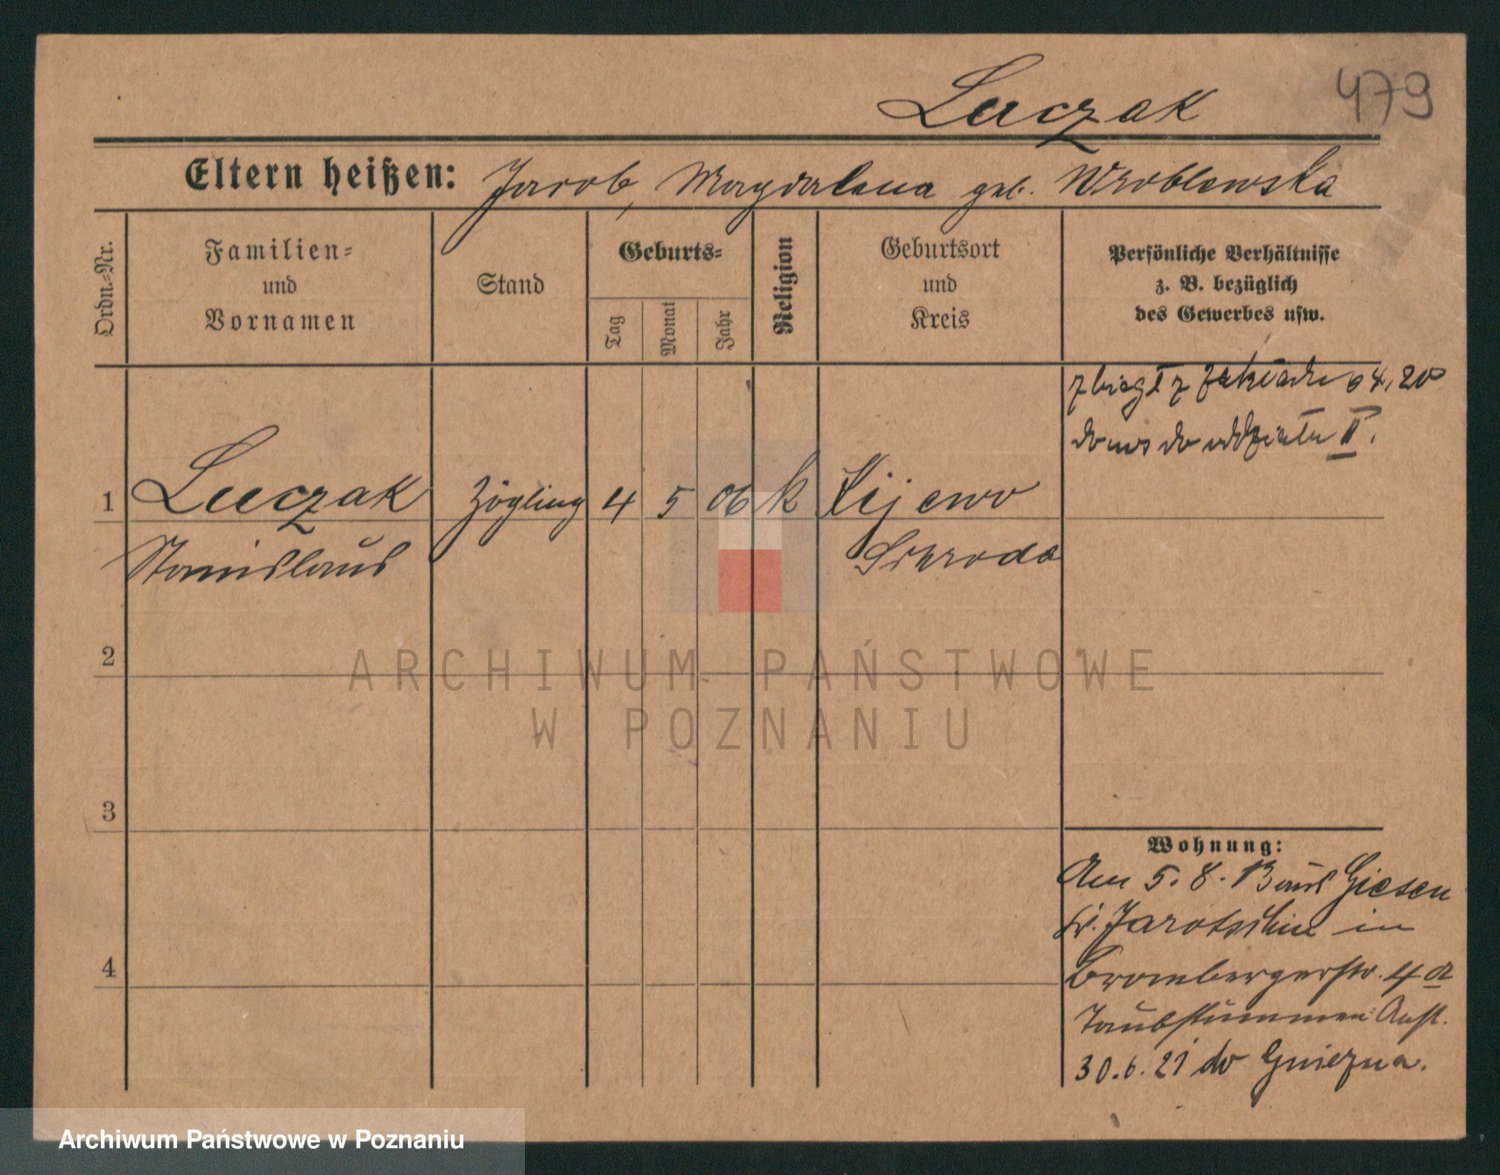 Luczak
479
Eltern heißen: Jacob, Magdalena geb. Wroblewska
Ordn.-Nr.
Familien-
und
Vornamen
Stand
Geburts-
Tag
Monat
Jahr
Religion
Geburtsort
und
Kreis
Persönliche Verhältnisse
z. B. bezüglich
des Gewerbes usw.
zbiegł z 4, 20
do oddziału II.
1 Luczak Zögling 4 5 06 k Kijewo
Stanislaus Schroda
2
3
4
Wohnung:
Am 5. 8. 13 aus Giesen
Jarotschin in
Brombergerstr. 4 a
Taubstummen Anst.
30.6.21 do Gniezna.
ARCHIWUM PAŃSTWOWE
W POZNANIU
Archiwum Państwowe w Poznaniu